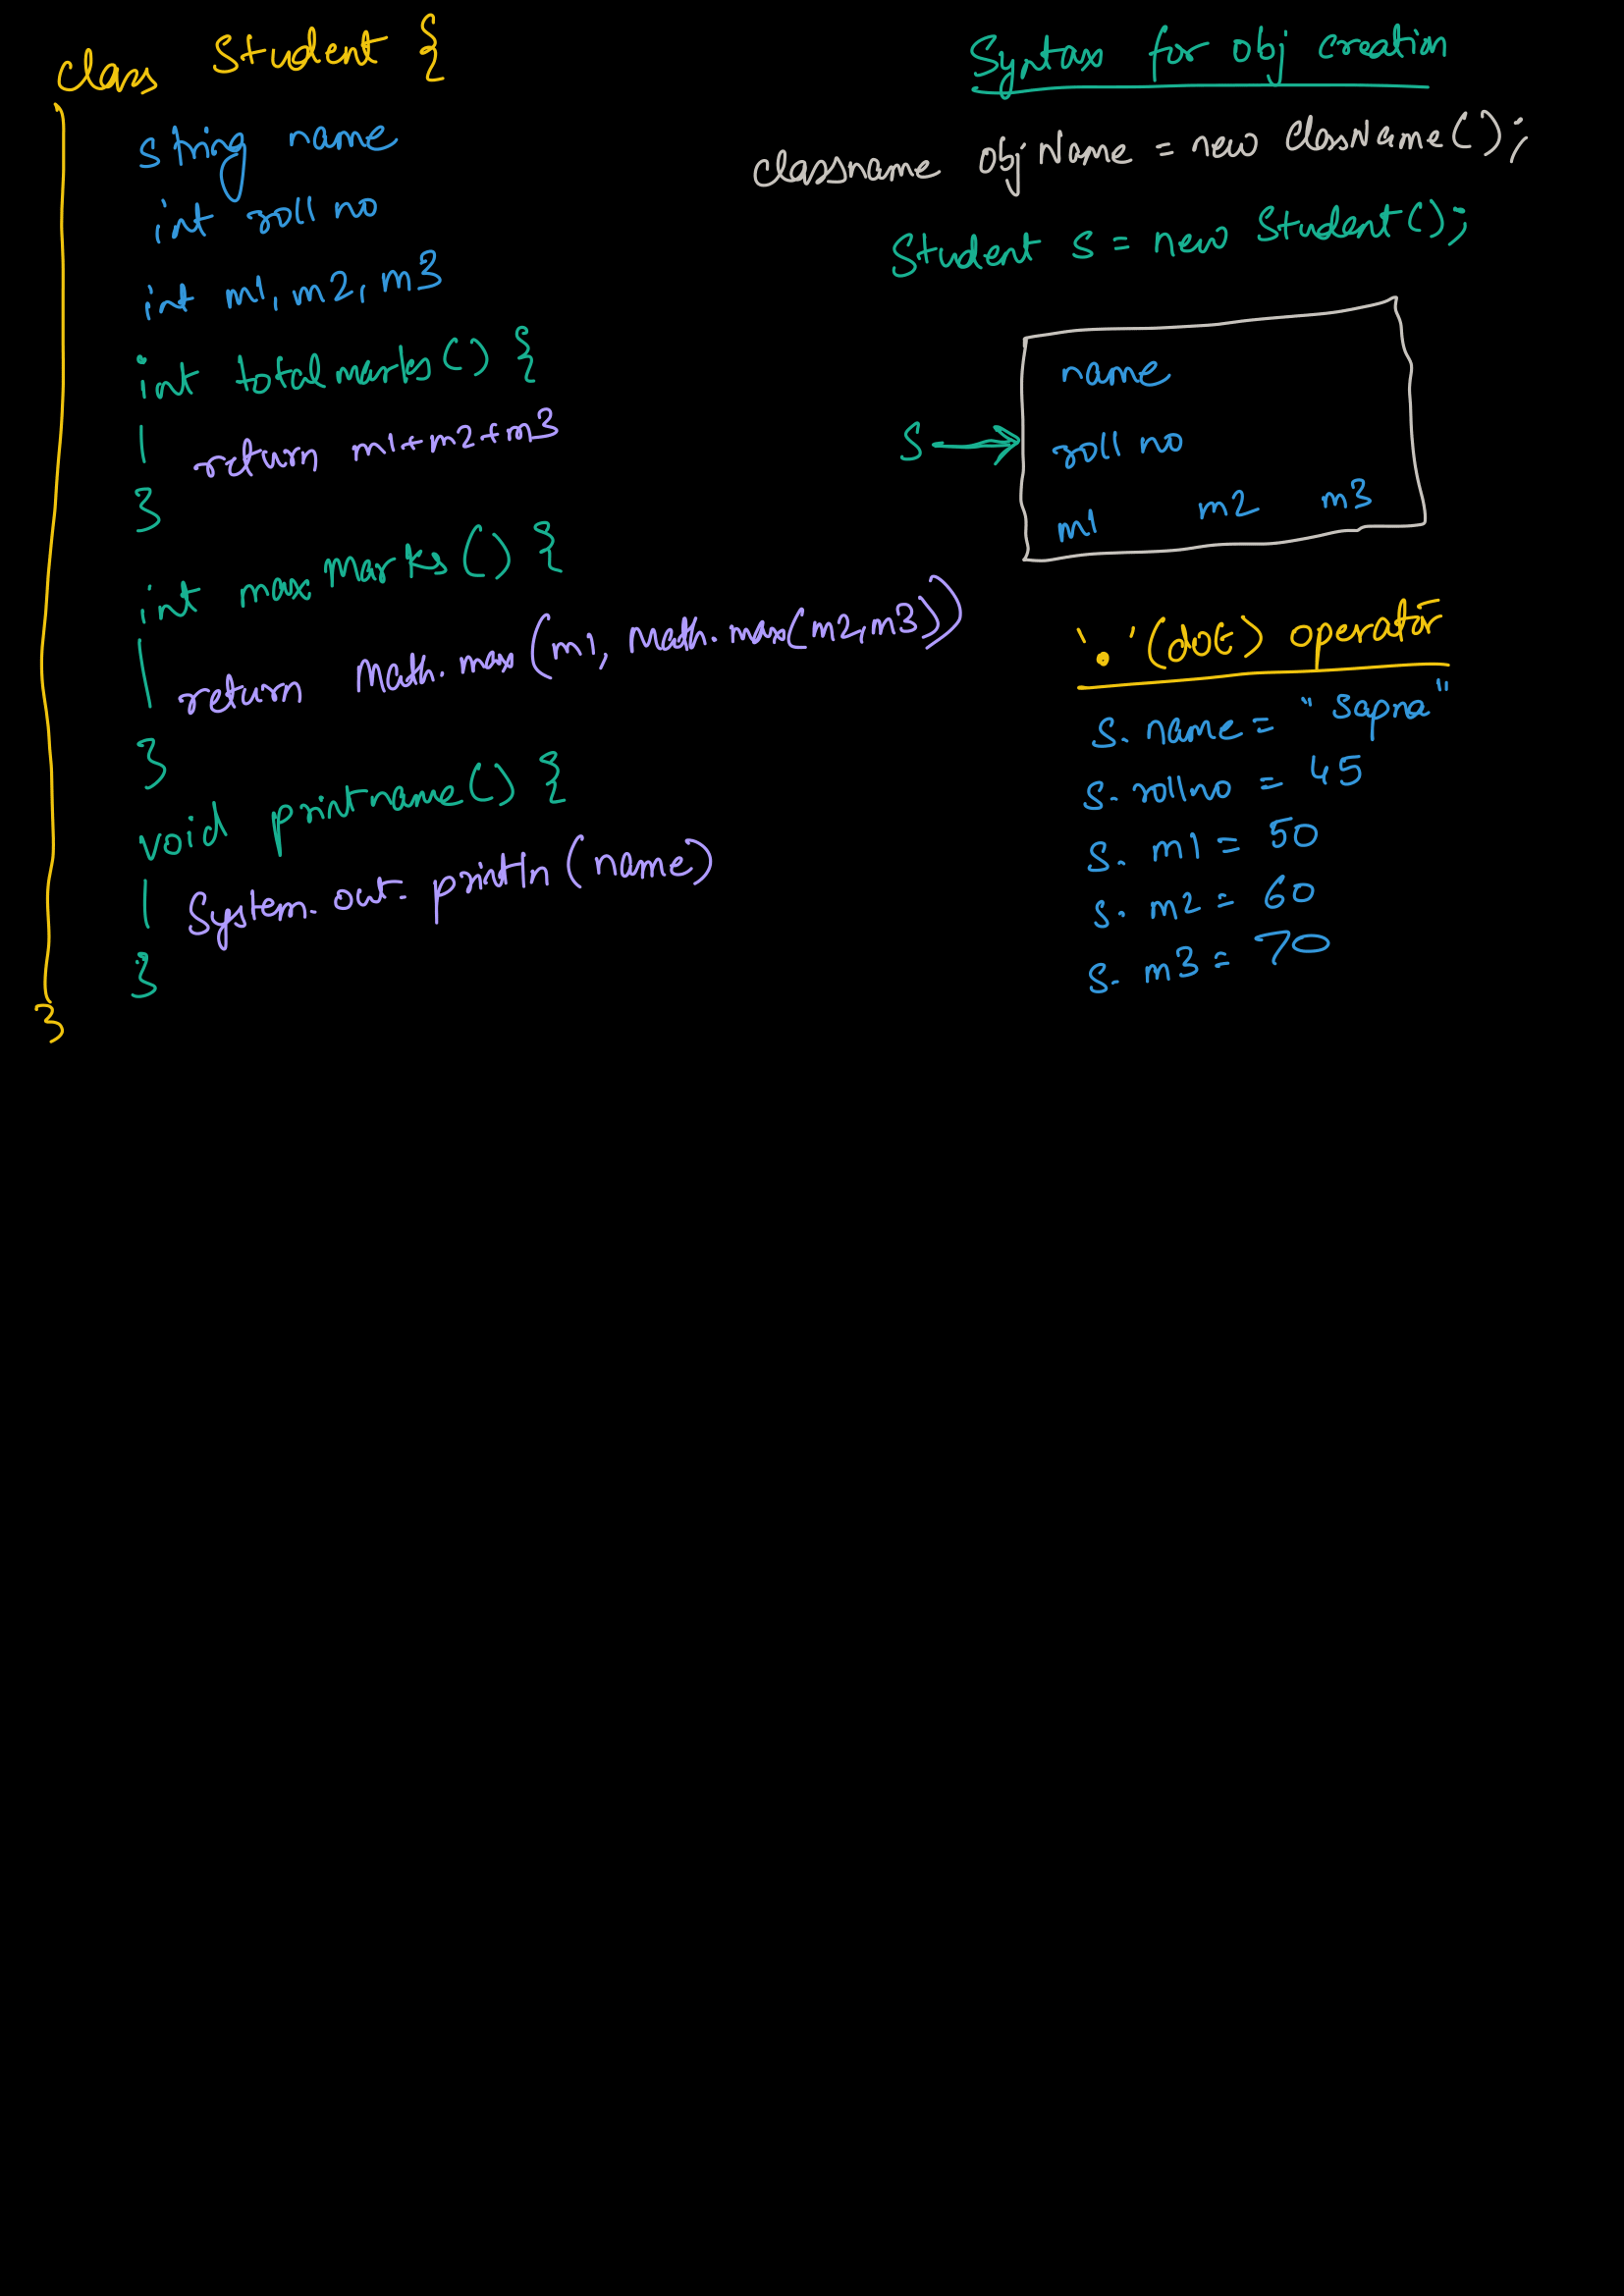 class Student {
string name
int roll no
int m1, m2, m3
int total marks() {
return m1+m2+m3
}
int max Marks() {
return Math.max(m1, Math.max(m2,m3))
}
void printname() {
System.out.println(name)
}
}
Syntax for obj creation
classname objName = new ClassName();
Student s = new Student();
S
name
roll no
m1 m2 m3
'.' (dot) operator
s.name = "Sapna"
s.rollno = 45
s.m1 = 50
s.m2 = 60
s.m3 = 70